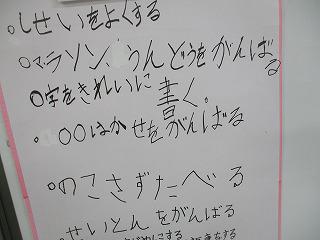 ○しせいをよくする
○マラソン、うんどうをがんばる
○字をきれいに書く。
・○○はかせをがんばる
・のこさずたべる
・せいとんをがんばる